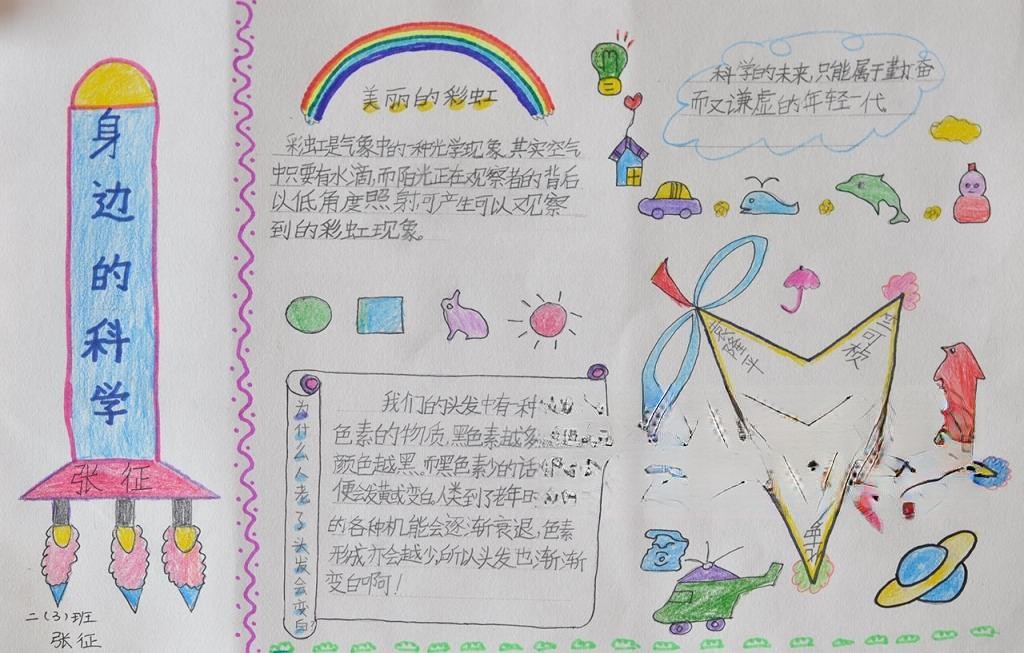 身边的科学
张征
二(3)班
张征
美丽的彩虹
彩虹是气象中的一种光学现象,其实空气
中只要有水滴,而阳光正在观察者的背后
以低角度照射可产生可以观察
到的彩虹现象。
科学的未来,只能属于勤奋
而又谦虚的年轻一代。
竺可桢
为什么人老了头发会变白?
我们的头发中有一种
色素的物质,黑色素越多
颜色越黑,而黑色素少的话
便会发黄或变白人类到了老年
的各种机能会逐渐衰退,色素
形成亦会越少,所以头发也渐渐
变白啊!